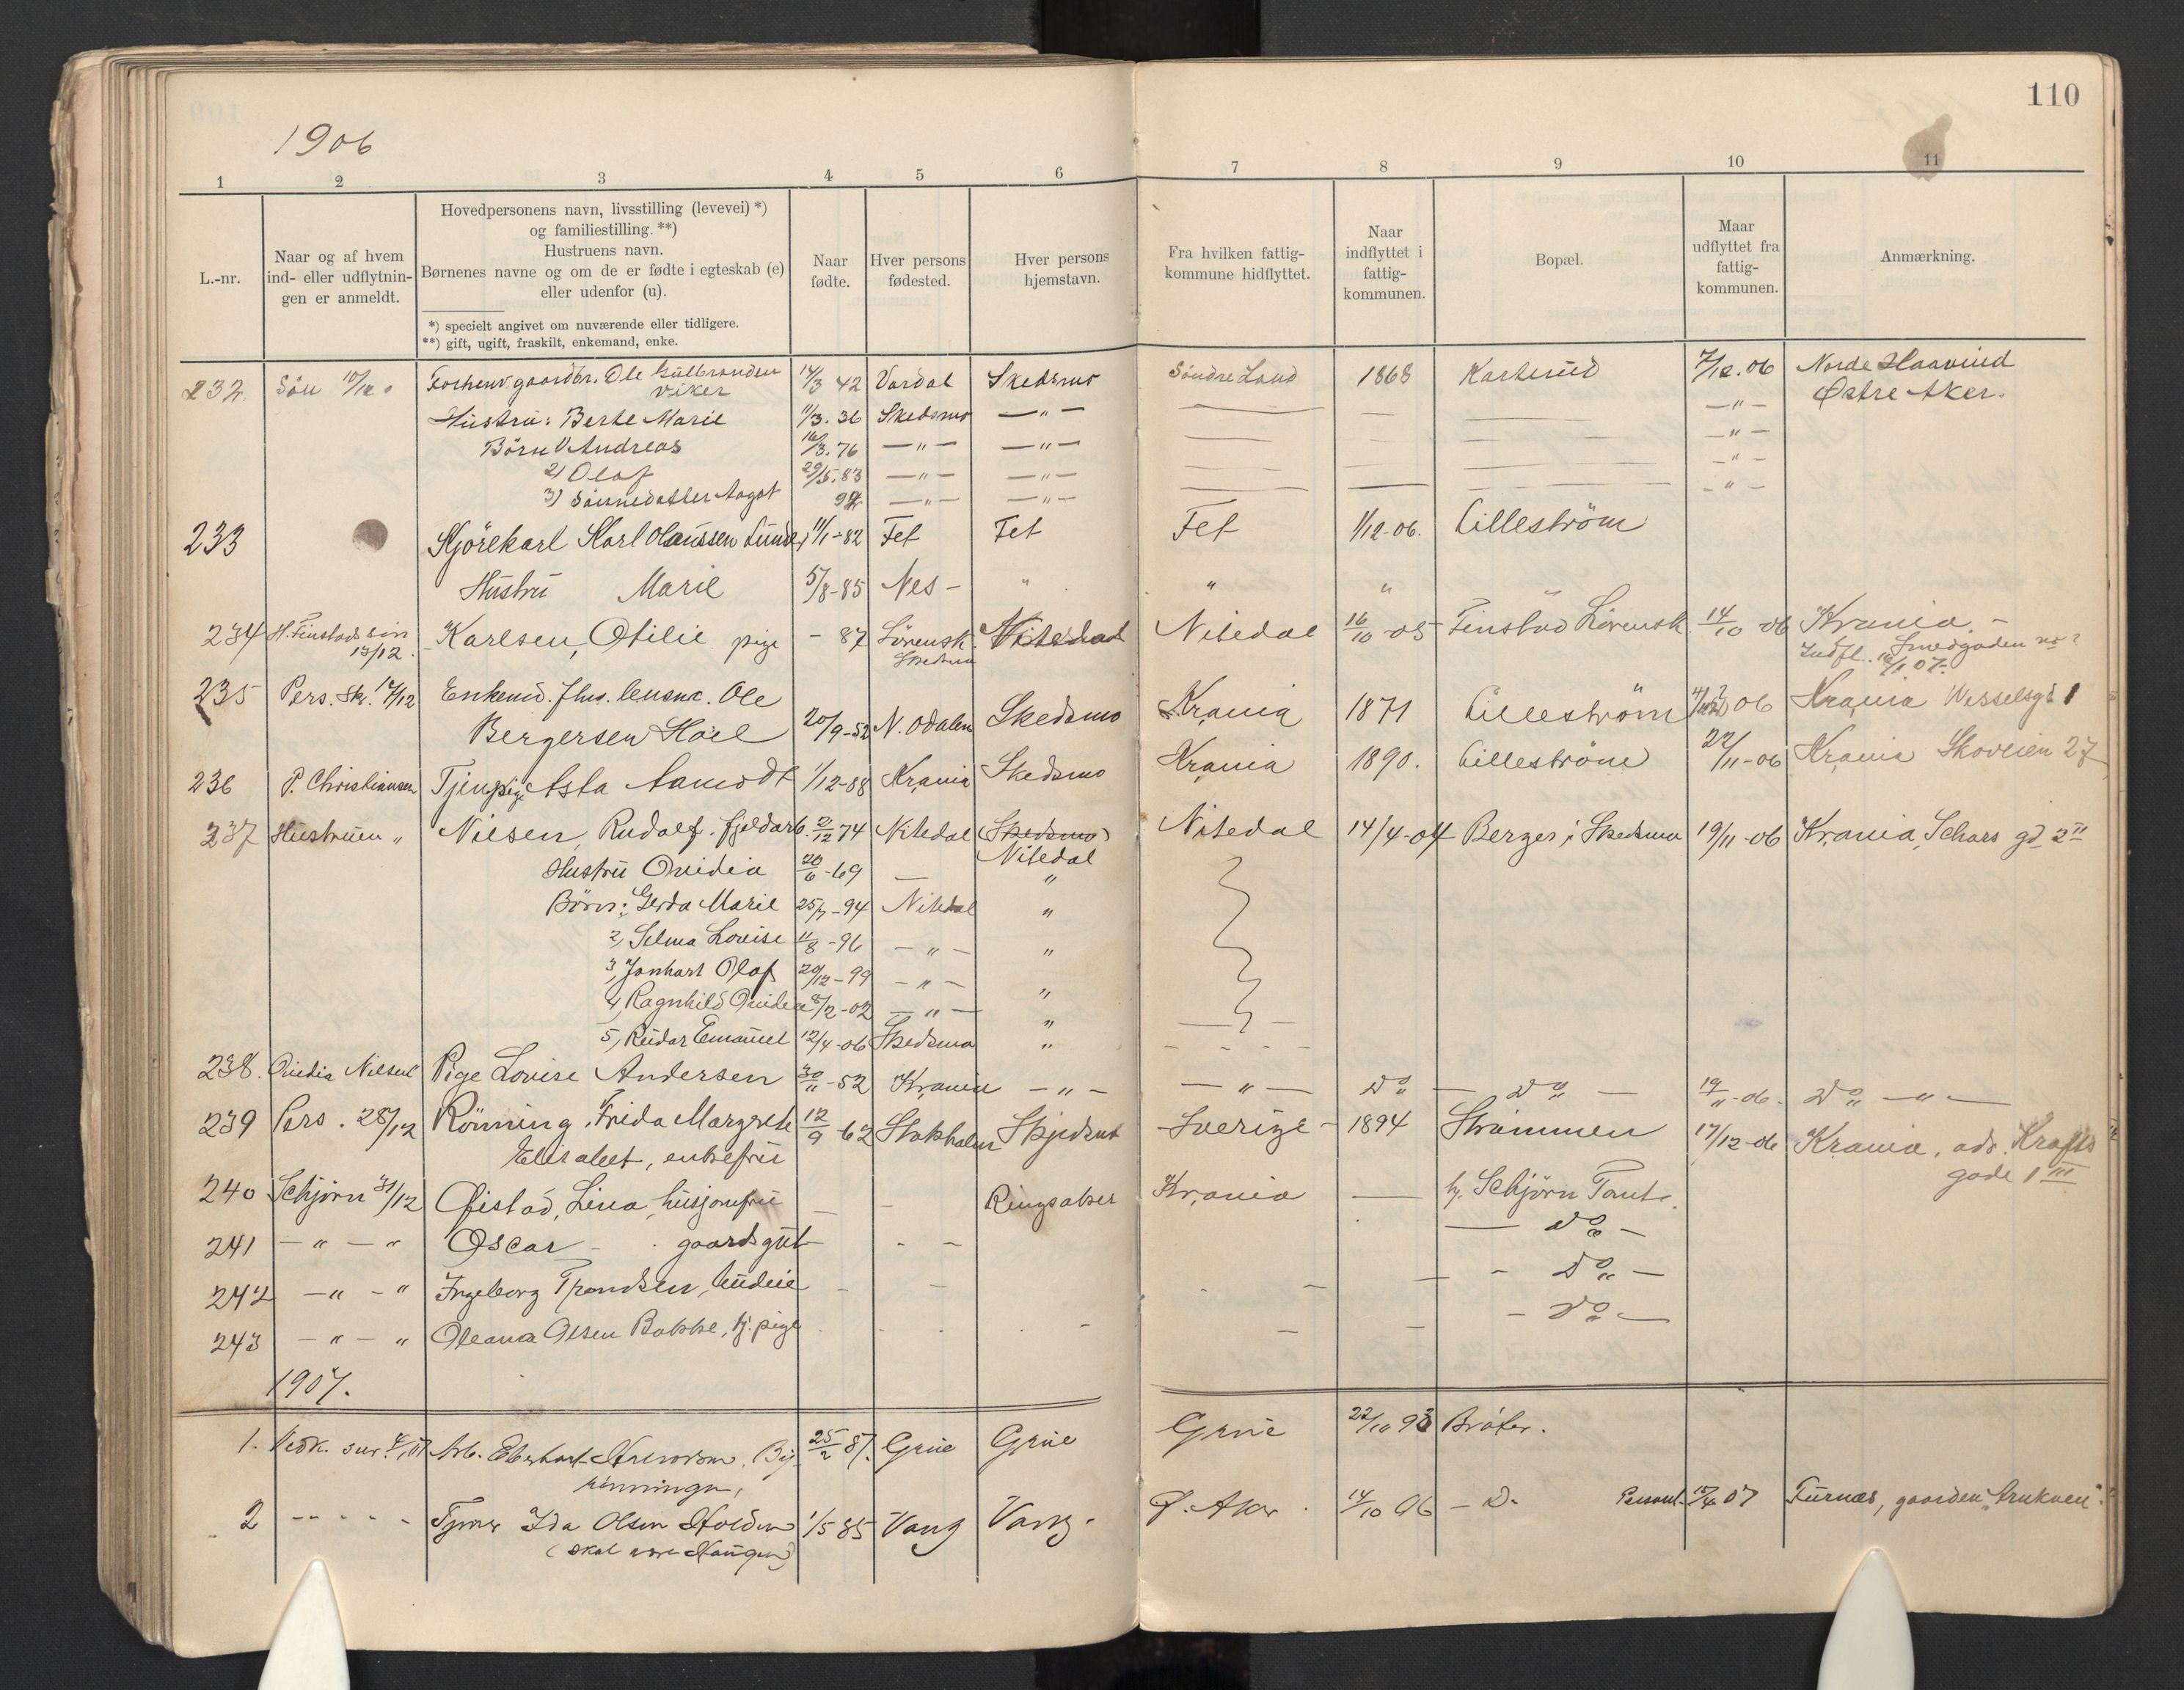 110
1906
1 2 3 4 5 6 7 8 9 10 11
L.-nr.
Naar og af hvem
ind- eller udflytnin-
gen er anmeldt.
Hovedpersonens navn, livsstilling (levevei) *)
og familiestilling. **)
Hustruens navn.
Børnenes navne og om de er fødte i egteskab (e)
eller udenfor (u).
*) specielt angivet om nuværende eller tidligere.
**) gift, ugift, fraskilt, enkemand, enke.
Naar
fødte.
Hver persons
fødested.
Hver persons
hjemstavn.
Fra hvilken fattig-
kommune hidflyttet.
Naar
indflyttet i
fattig-
kommunen.
Bopæl.
Maar
udflyttet fra
fattig-
kommunen.
Anmærkning.
232. Søn 10/12 Forhenv. gaardbr. Ole Gulbrandsen 14/3 42 Vardal Skedsmo Søndre Land 1868 Karterud 7/12.06 Nordre Haavind
Viker Østre Aker.
Hustru: Berte Marie 11/3.36 Skedsmo — " — — — — — " —
Børn 1) Andreas 16/3.76 — " — — " — — — — — " —
2) Olaf 29/5.83 — " — — " — — — — — " —
3) Sønnedatter Aagot 94 — " — — " — — — — — " —
233 Kjørekarl Karl Olaussen Lunde, 11/1-82 Fet Fet Fet 1/12-06. Lilleström
Hustru Marie 5/8-85 Nes - " " " "
234 H. Finstad sin Karlsen, Otilie pige - 87 Lörensk. Nitedal Nitedal 16/10-05 Finstad Lörensk. 14/10-06 Krania -
13/12. Skedsmo Smedgaden no ?
Indfl. 16/1 07.
235 Pers. Sk. 17/12 Enkemd. fhv. lensm. Ole
Bergersen Hoel 20/9-52 N. Odalen Skedsmo Krania 1871 Lilleström 06 Krania Wesselsgd 1
236 P. Christiansen Tjenpige Asta Aamodt 1/12-88 Krania Skedsmo Krania 1890. Lilleström 22/11-06 Krania Skoveien 27
237 Hustruen " Nilsen, Rudolf. fjeldarb. 2/12 74 Nitedal (Skedsmo) Nitedal 14/4-04 Berger i Skedsmo 19/11-06 Krania, Schous gd 2 II
Nitedal
Hustru Ovidia 20/6-69 — "
Børn: Gerda Marie 25/7-94 Nitedal "
2, Selma Lovise 11/8-96 — " — "
3, Jonhart Olaf 20/12-99 — " —
4, Ragnhild Ovidia 8/2-02 — " — "
5, Reidar Emanuel 12/4-06 Skedsmo " "
238. Ovidia Nilsen Pige Lovise Andersen 30/11-52 Krania — " — — " — Do — Do — 19/11-06. Do — " —
239 Pers. 28/12 Rönning, Frida Margrete 12/9-62 Stokholm Skjedsmo Sverige - 1894 Strömmen 17/12-06 Krania, adr. Krafts
Elisabet, enkefru gade 1 III
240 Schjörn 31/12 Øistad, Lina, husjomfru — — Ringsaker Krania — hj. Schjörn Tomt.
241 — " — " Oscar - gaardsgut - — — Do —
242 — " — " Ingeborg Trondsen, budeie - — — — - Do —
243 — " — " Oleana Olsen Bakke, tj. pige — — - Do —
1907.
1. Vedk. selv. Arb. Eberhart 25/2 87. Grue Grue Grue 22/10 93 Bråter.
2 - - - - - Tjener Ida Olsen Holden 1/5 85 Vang Vang. Ø. Aker. 14/10 06 - D. Personl. 15/4 07 Furnæs, gaarden "Arukven".
(skal være Haugen)